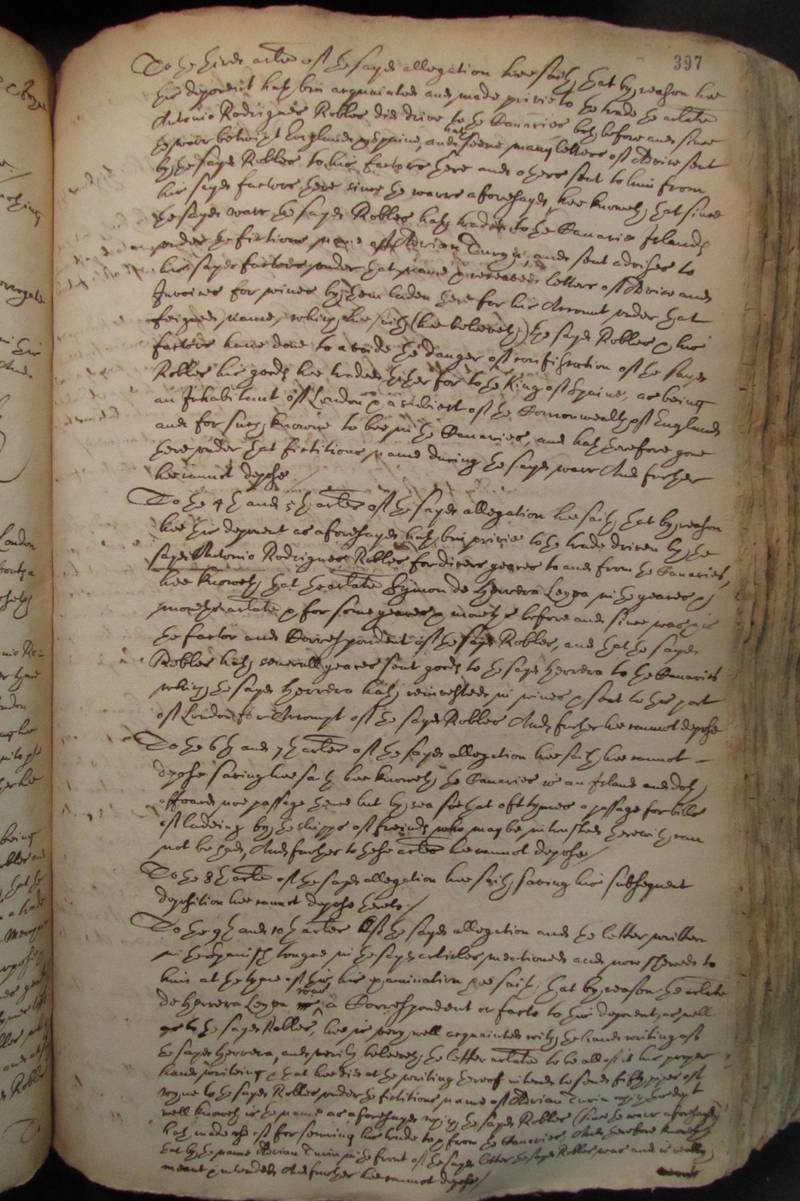 397
To the third article of the sayd allegation hee saith, that by reason hee
this deponent hath bin acquainted and made privie to the trade the articulate
Antonio Rodrigues Robles did drive to the Canaries both before and since
the warr betwixt England and Spaine, and hath seene many letters of Advice sent
by the sayd Robles to his factors there and others sent to him from
his sayd factors there since the warre aforesayd, hee knoweth that since
the sayd warr the sayd Robles hath traded to the Canarie Islands
under the fictitious name of Adrian and sent advises to
his sayd factors under that name received letters of Advice and
Invoices for wines by them laden there for his Account under that
feigned name, which hee saith (hee beleeveth) the sayd Robles & his
factors have done to avoide the danger of confiscation of the sayd
Robles his goods hee traded thither for to the King of Spaine, as being
an Inhabitant of London & a subiect of the Commonwealth of England
and for such knowne to bee in the Canaries, and hath therefore gone
there under that fictitious name during the sayd warr And further
hee cannot depose /
To the 4th and 5th articles of the sayd allegation hee saith, that by reason
hee this deponent as aforesayd hath bin privie to the trade driven by the
sayd Antonio Rodrigues Robles for divers yeares to and from the Canaries,
hee knoweth that the articulate Symon de Herrera Leyva in the yeares &
moneths articulate & for some yeares & moneths before and since was
the factor and Correspondent of the sayd Robles, and that the sayd
Robles hath severall yeares sent goods to the sayd Herrera to the Canaries
which the sayd Herrera hath reinvested in wines & sent to this port
of London for Accompt of the sayd Robles And further hee cannot depose
To the 6th and 7th articles of the sayd allegation hee saith hee cannot
depose saving hee saith hee knoweth the Canaries is an Island and doth
affoard noe passage thence but by sea soe that oft tymes a passage for bills
of ladeing by the shipps of freinds who may be intrusted therewith can
not be had, And further to these articles hee cannot depose /
To the 8th article of the sayd allegation hee saith saving his subsequent
deposition hee cannot depose thereto /
To the 9th and 10th articles of the sayd allegation and the letter written
in the Spanish tongue in the sayd articles mentioned and now shewed to
him at the tyme of this his examination hee saith, that by reason the articulate
de Herrera Leyva was a Correspondent or factor to this deponent, as well
as to the sayd Robles, hee is very well acquainted with the handwriting of
the sayd Herrera, and verily beleeveth the letter articulate to be all of it his proper
hand writing & that hee did at the writing thereof intend to send fifty pipes of
wyne to the sayd Robles under the fictitious name of Adrian
well knoweth is the name as aforesayd the sayd Robles (since the warr aforesayd)
hath made use of for his trade to & from the Canaries And therefore knoweth
that by the name Adrian in the front of the sayd letter the sayd Robles was and is really
meant & intended, And further hee cannot depose /